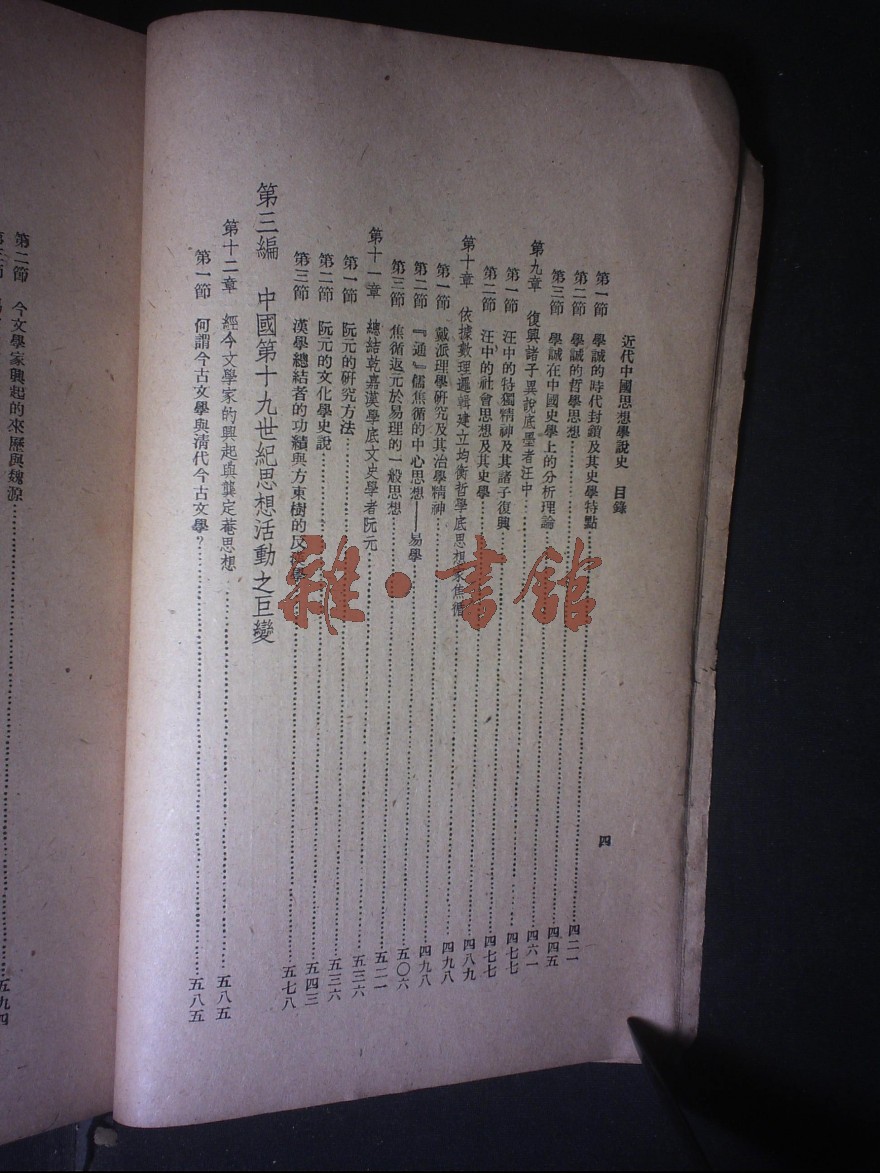 近代中國思想學說史 目錄 四
第一節 學誠的時代封鎖及其史學特點……四二一
第二節 學誠的哲學思想……四四五
第三節 學誠在中國史學上的分析理論……四六一
第九章 復興諸子異說底墨者汪中……四七七
第一節 汪中的特獨精神及其諸子復興……四七七
第二節 汪中的社會思想及其史學……四八九
第十章 依據數理邏輯建立均衡哲學底思想家焦循……四九八
第一節 戴派理學研究及其治學精神……四九八
第二節 『通』儒焦循的中心思想——易學……五〇六
第三節 焦循返元於易理的一般思想……五二一
第十一章 總結乾嘉漢學底文史學者阮元……五三六
第一節 阮元的研究方法……五三六
第二節 阮元的文化學史說……五四三
第三節 漢學總結者的功績與方東樹的反漢學……五七八
第三編 中國第十九世紀思想活動之巨變
第十二章 經今文學家的興起與龔定菴思想……五八五
第一節 何謂今古文學與清代今古文學？……五八五
第二節 今文學家興起的來歷與魏源……五九四
雜·書館